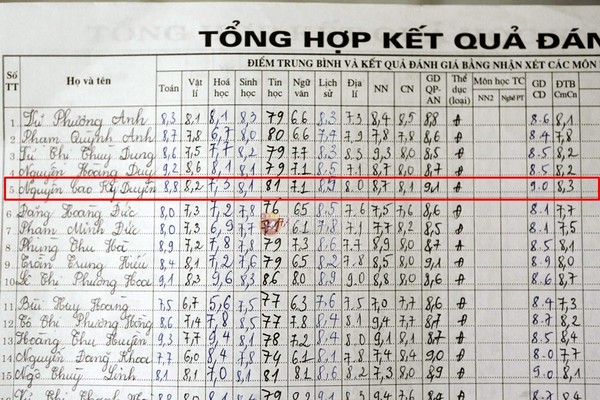 TỔNG HỢP KẾT QUẢ ĐÁN
Số TT Họ và tên ĐIỂM TRUNG BÌNH VÀ KẾT QUẢ ĐÁNH GIÁ BẰNG NHẬN XÉT CÁC MÔN
Toán Vật lí Hoá học Sinh học Tin học Ngữ văn Lịch sử Địa lí NN CN GD QP-AN Thể dục (loại) Môn học TC NN2 Nghề PT GD CD ĐTB CmCn
1 Vũ Phương Anh 8,3 8,1 8,1 8,3 79 6.6 8,3 7.3 8,4 8,5 8,8 Đ 8.6 8,1
2 Phạm Quỳnh Anh 8,7 7,8 6,7 8,0 80 6.6 7,4 7,9 7,8 7,7 8,6 Đ 8.4 7,8
3 Vũ Thị Thuỳ Dung 8,6 7,5 7,7 7,9 77 7.8 8,3 9.3 8,0 8,5 Đ 8.5 8,2
4 Nguyễn Hoàng Duy 9,2 8,6 8,1 8,1 79 7.1 8,5 7.5 8,7 8,0 8,7 Đ 8.5 8,2
5 Nguyễn Cao Kỳ Duyên 8,8 8,2 7,3 8,1 81 7.1 8,9 8.0 8,7 8,1 9,1 Đ 9.0 8,3
6 Đặng Hoàng Đức 8,0 7,3 7,2 7,8 76 6.5 8,5 7.6 7,5 7,6 Đ 8.1 7,7
7 Phạm Minh Đức 7,3 6,9 7,7 81 6.1 7,8 7.1 7,7 8,2 8,5 Đ 8.1 7,5
8 Phùng Thu Hà 8,9 7,2 7,8 7,8 79 7.3 8,6 7.7 8,9 8,0 8,7 Đ 8.5 8,1
9 Trần Trung Hiếu 8,4 8,1 7,2 7,6 79 6.5 8,2 7.8 8,5 8,0 9,1 Đ 8.9 8,0
10 Lê Thị Phương Hoa 9,1 8,3 9,6 8,3 86 8.0 8,9 9.0 8,8 8,0 8,6 Đ 8.6 8,7
11 Bùi Huy Hoàng 7,5 6,7 5,6 7,5 77 6.3 7,6 7.5 7,0 7,7 8,6 Đ 8.4 7,3
12 Tô Thị Phương Hồng 8,6 7,4 7,8 8,5 77 7.8 8,4 9,4 7,7 8,7 Đ 8.7 8,2
13 Hoàng Thu Huyền 9,3 7,7 9,4 8,1 78 7.2 8,4 9,1 8,2 9,1 Đ 8.5 8,4
14 Nguyễn Đăng Khoa 7,7 6,0 8,4 7,8 74 6.1 8,1 7.8 7,4 7,4 9,0 Đ 8.0 7,7
15 Ngô Thuỳ Linh 8,1 8,1 7,0 8,1 77 7.1 8,5 8.7 7,4 8,0 8,9 Đ 9.0 8,1